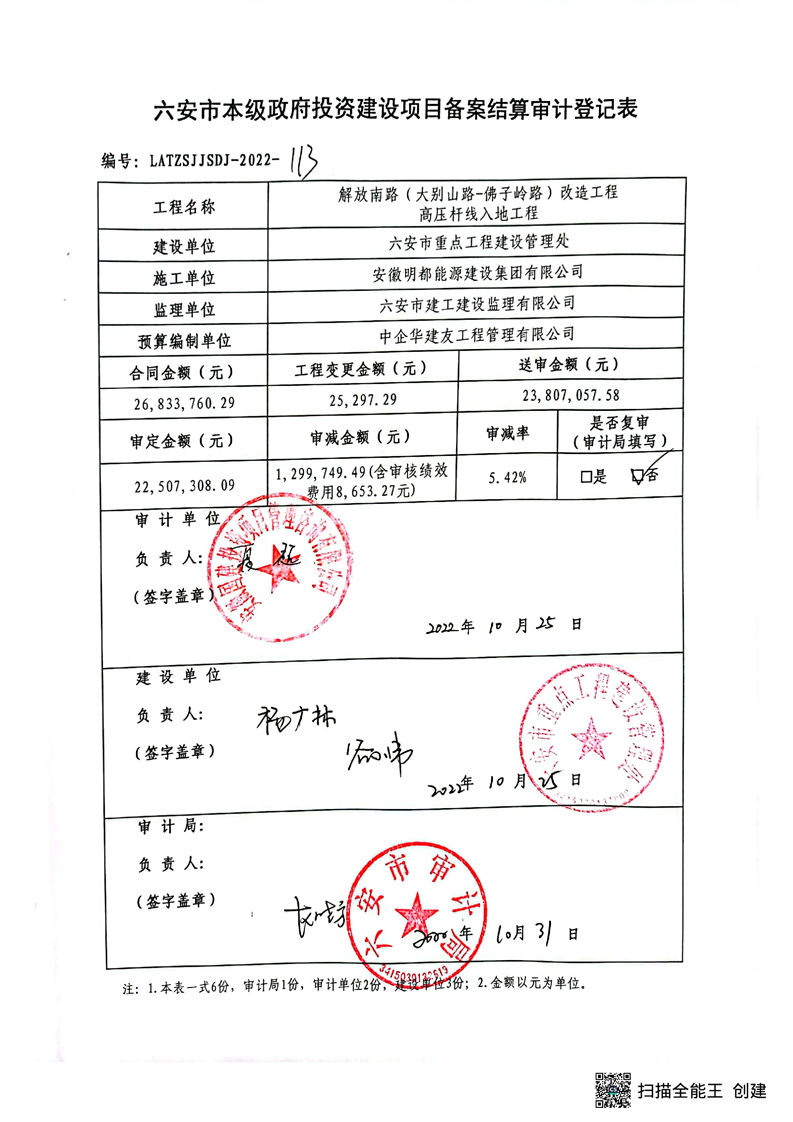 六安市本级政府投资建设项目备案结算审计登记表
编号：LATZSJJSDJ-2022-113
工程名称 解放南路（大别山路-佛子岭路）改造工程
高压杆线入地工程
建设单位 六安市重点工程建设管理处
施工单位 安徽明都能源建设集团有限公司
监理单位 六安市建工建设监理有限公司
预算编制单位 中企华建友工程管理有限公司
合同金额（元） 工程变更金额（元） 送审金额（元）
26,833,760.29 25,297.29 23,807,057.58
审定金额（元） 审减金额（元） 审减率 是否复审
（审计局填写）
22,507,308.09 1,299,749.49(含审核绩效
费用8,653.27元) 5.42% □是 □否
审计单位
负责人：
（签字盖章）
2022年 10 月 25 日
建设单位
负责人： 杨广林
（签字盖章）
2022年 10 月 25 日
六安市重点工程建设管理处
审计局：
负责人：
（签字盖章）
年 10月 31 日
六安市审计局
3415030122519
注：1.本表一式6份，审计局1份，审计单位2份，建设单位3份；2.金额以元为单位。
扫描全能王 创建